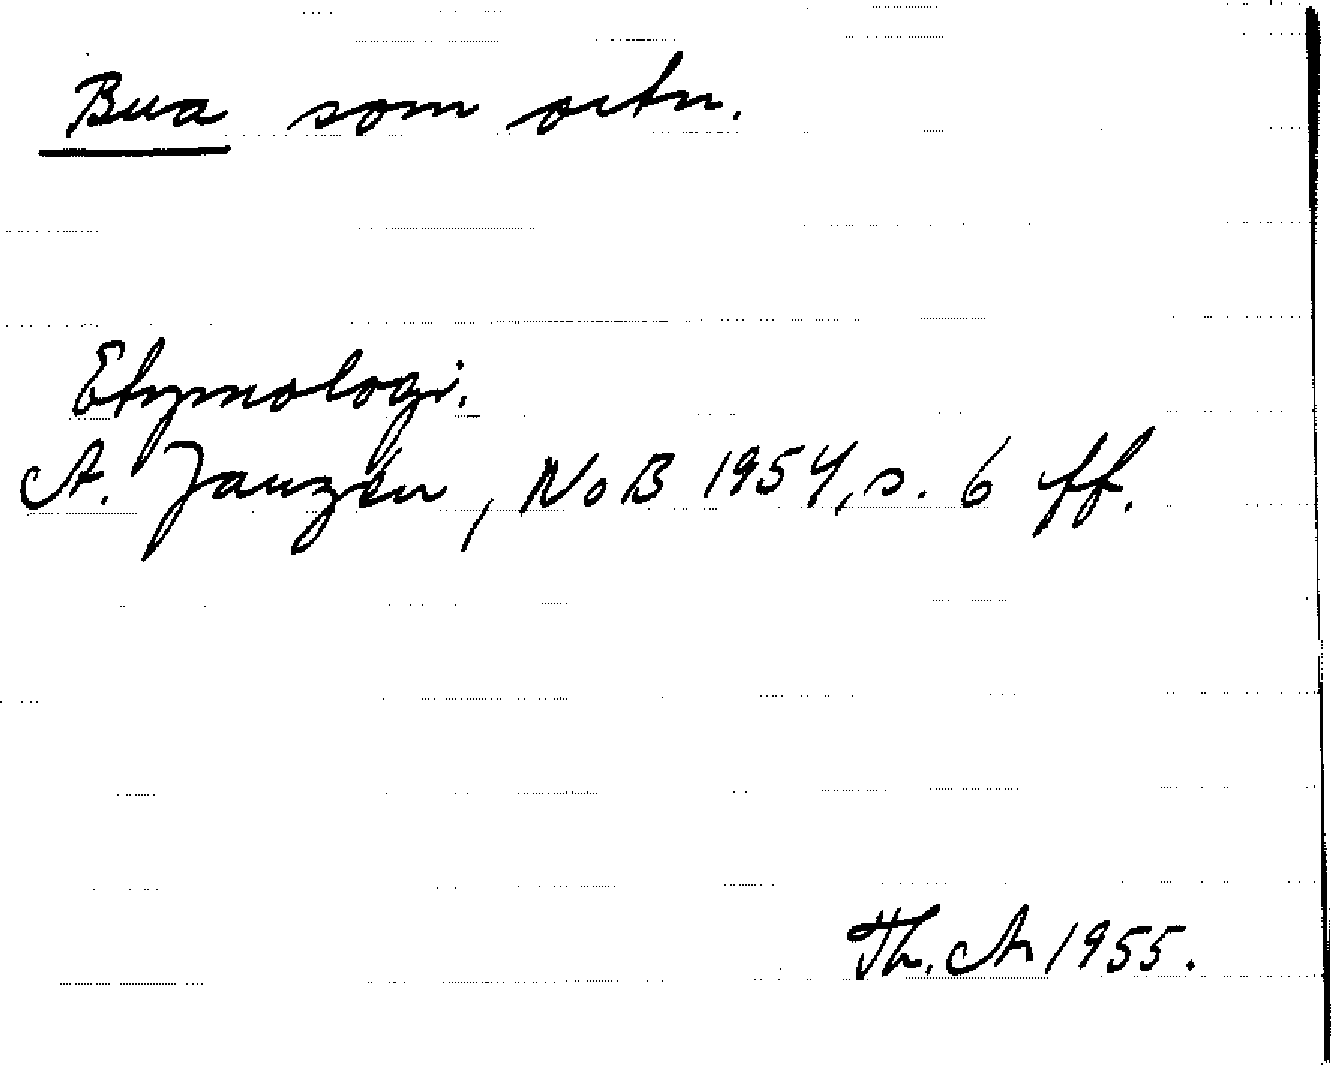 Bua som ortn.
Etymologi.
A. Janzén, NoB 1954, s. 6 ff.
Th. A. 1955.